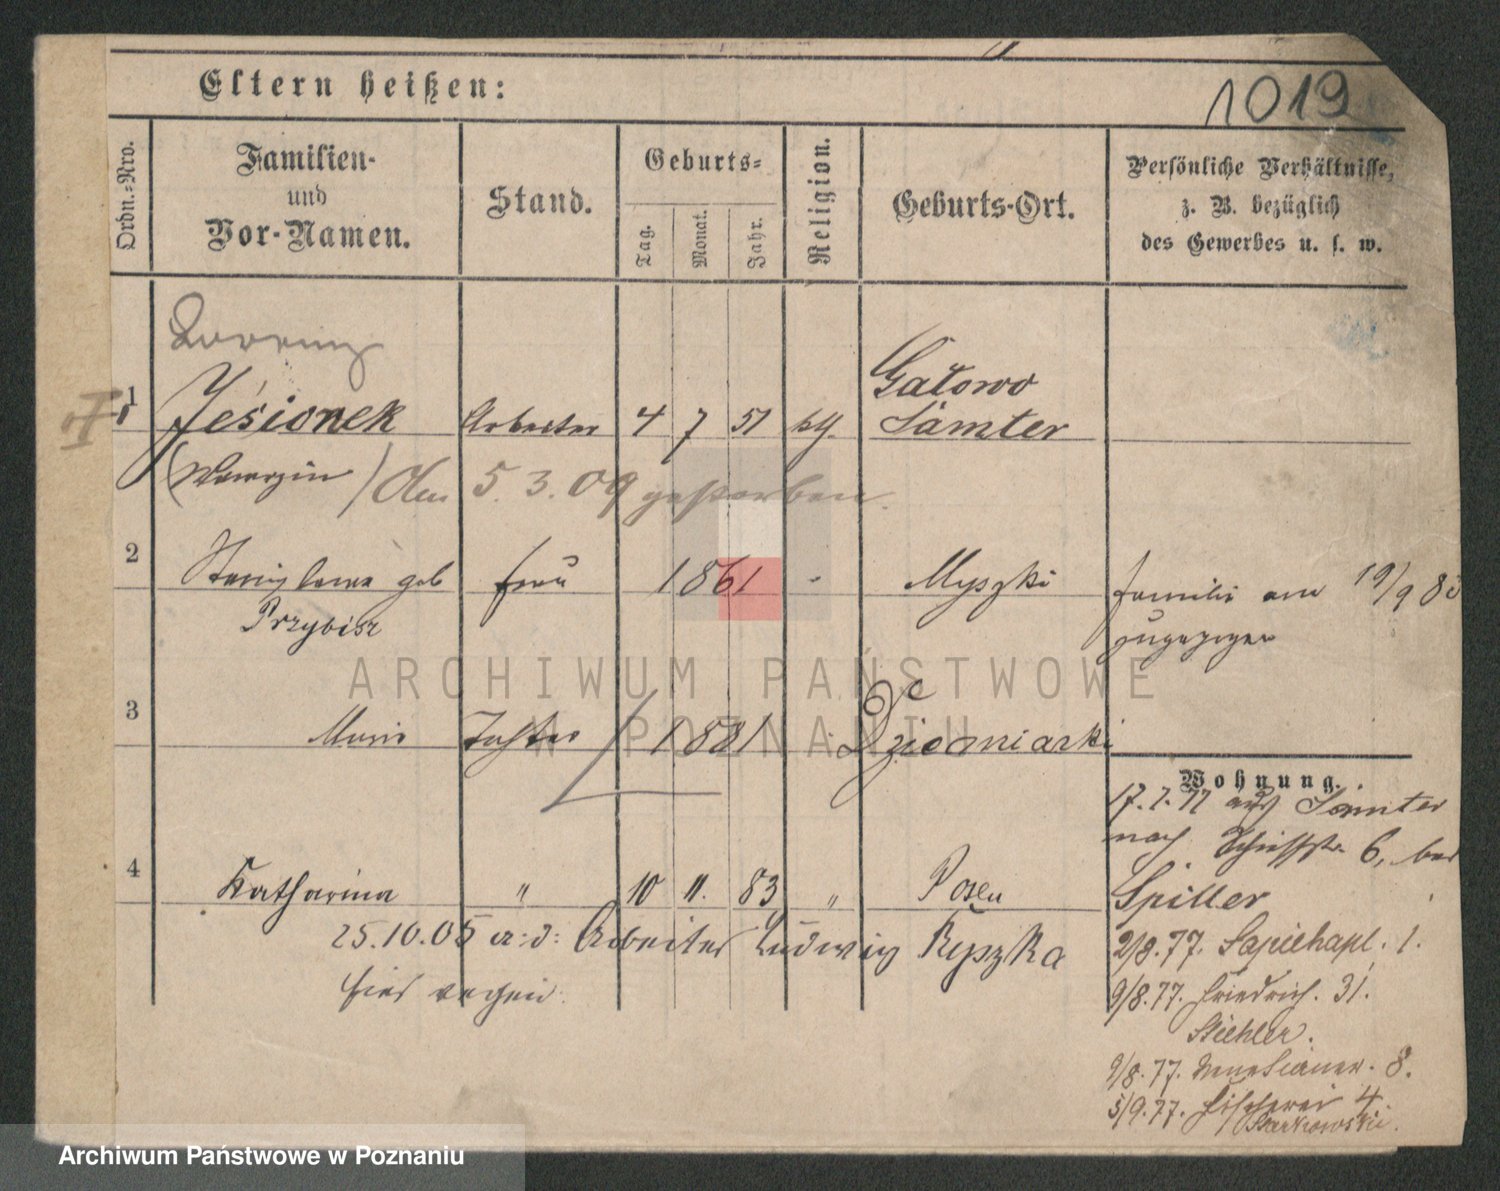 Eltern heißen:
1019
Ordn.-Nro.
Familien-
und
Vor-Namen.
Stand.
Geburts-
Tag.
Monat.
Jahr.
Religion.
Geburts-Ort.
Persönliche Verhältnisse,
z. B. bezüglich
des Gewerbes u. s. w.
Lorenz
1 Jesionek Arbeiter 4 7 51 kth. Gałowo
Samter
(Wawrzin) den 5.3.09 gestorben
2 Stanislawa geb Frau 1861 Myszki Familie am 19/9 83
Przybisz zugezogen
3 Marie Tochter 1881 Dziemiarki
Wohnung.
17.7.77 aus Samter
nach Schiffstr 6, bei
4 Katharina " 10 11. 83 " Posen
Spiller
25.10.05 a:d: Arbeiter Ludwig Ryszka
hier
2/8.77. Sapiehapl. 1.
9/8.77. Friedrich. 31.
Stiehler.
9/8.77. Venetianer. 8.
5/9.77. Fischerei 4.
ARCHIWUM PAŃSTWOWE
W POZNANIU
Archiwum Państwowe w Poznaniu